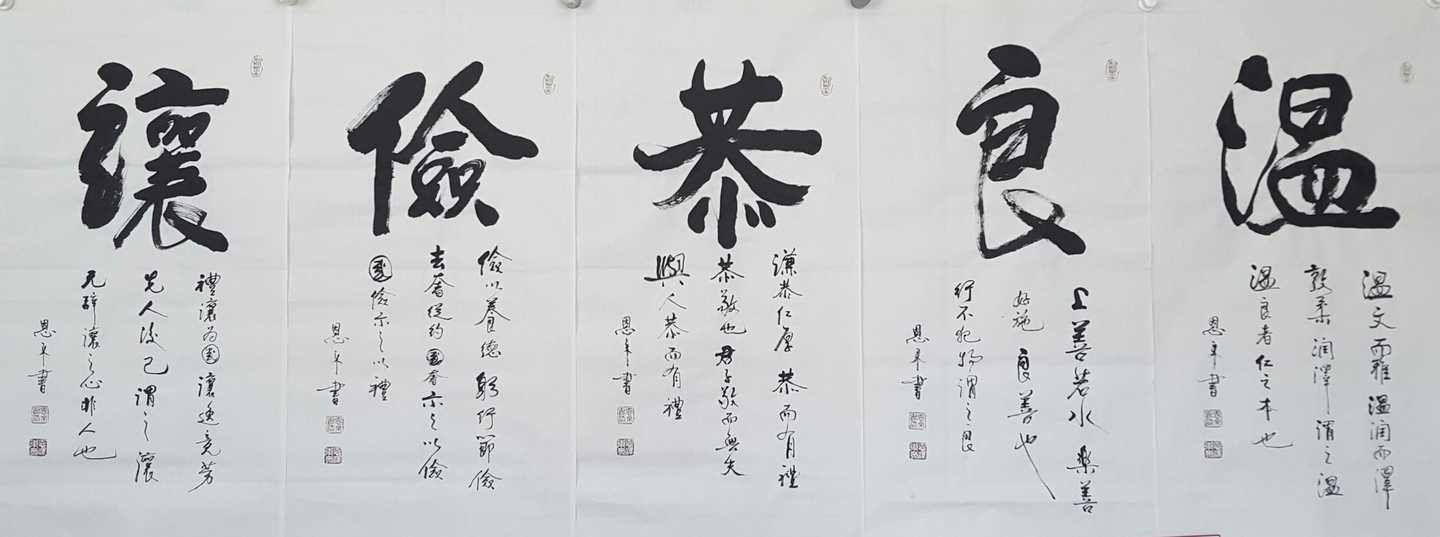 温
温文而雅温润而澤
敦柔润澤謂之温
温良者仁之本也
恩平書
良
上善若水樂善
好施良善也
行不犯物謂之良
恩平書
恭
謙恭仁厚恭而有禮
恭敬也君子敬而無失
與人恭而有禮
恩平書
儉
儉以養德躬行節儉
去奢從約國奢示之以儉
國儉示之以禮
恩平書
讓
禮讓为國讓逸竞劳
先人後己謂之讓
无辞讓之心非人也
恩平書